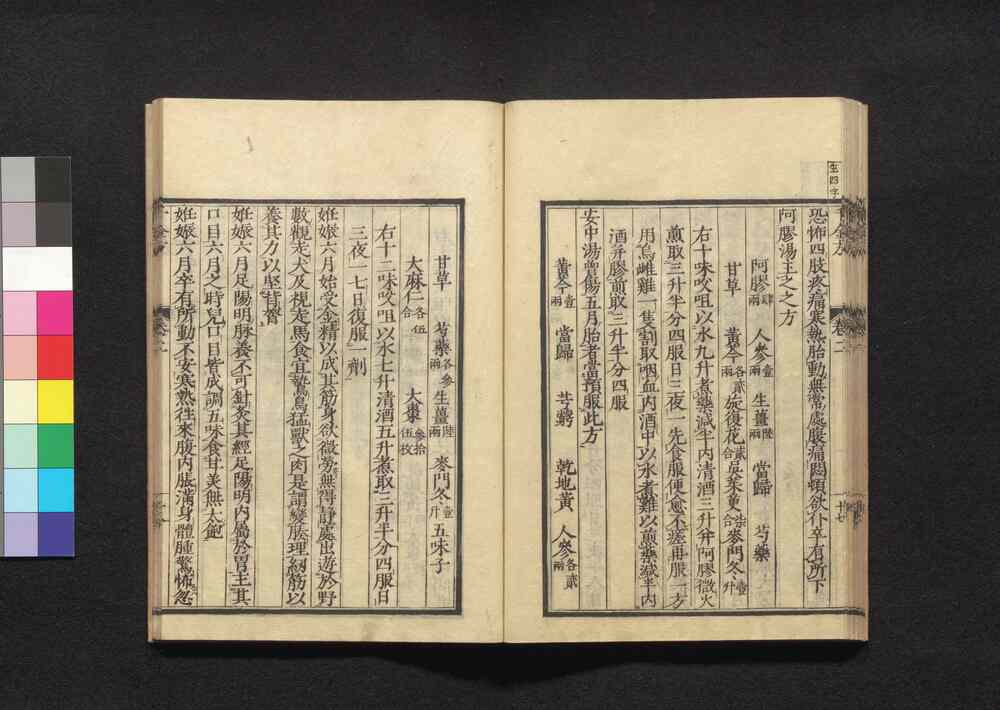 恐怖四肢疼痛寒熱胎動無常處腹痛悶頓欲仆卒有所下
阿膠湯主之之方
阿膠肆兩 人參壹兩 生薑陸兩 當歸 芍藥
甘草 黃芩各貳兩 旋復花貳合 吳茱萸柒合 麥門冬壹升
右十味㕮咀以水九升煮藥減半內清酒三升幷阿膠微火
煎取三升半分四服日三夜一先食服便愈不瘥再服一方
用烏雌雞一隻割取咽血內酒中以水煮雞以煎藥減半內
酒幷膠煎取三升半分四服
安中湯曾傷五月胎者當預服此方
黃芩壹兩 當歸 芎藭 乾地黃 人參各貳兩
甘草 芍藥各參兩 生薑陸兩 麥門冬壹升 五味子
大麻仁各伍合 大棗參拾伍枚
右十二味㕮咀以水七升清酒五升煮取三升半分四服日
三夜一七日復服一劑
妊娠六月始受金精以成其筋身欲微勞無得靜處出遊於野
數觀走犬及視走馬食宜鷙鳥猛獸之肉是謂變腠理紉筋以
養其力以堅背膂
妊娠六月足陽明脉養不可針灸其經足陽明內屬於胃主其
口目六月之時兒口目皆成調五味食甘美無大飽
妊娠六月卒有所動不安寒熱往來腹內脹滿身體腫驚怖忽
卷二